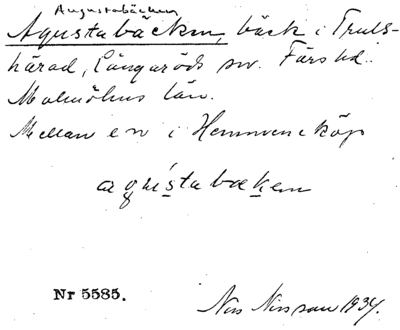 Augustabäcken
Agustabäcken, bäck i Truls-
härad, Långaröds sn. Färs hd.
Malmöhus län.
Mellan en i Hemmeneköp
agústabækem
Nr 5585.
Nils Nilsson 1934.